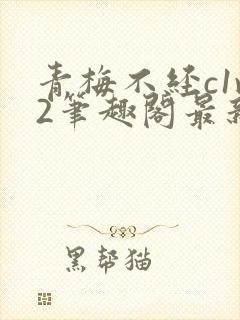 青梅不经c1v
2笔趣阁最新
黑帮猫